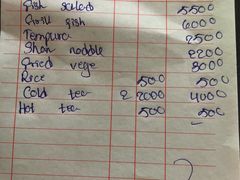 Fish salad 5500
Grill fish 6000
Tempura 2500
Shan noddle 2200
Fried vege 3000
Rice 500 500
Cold tea 2 2000 4000
Hot tea 500 500